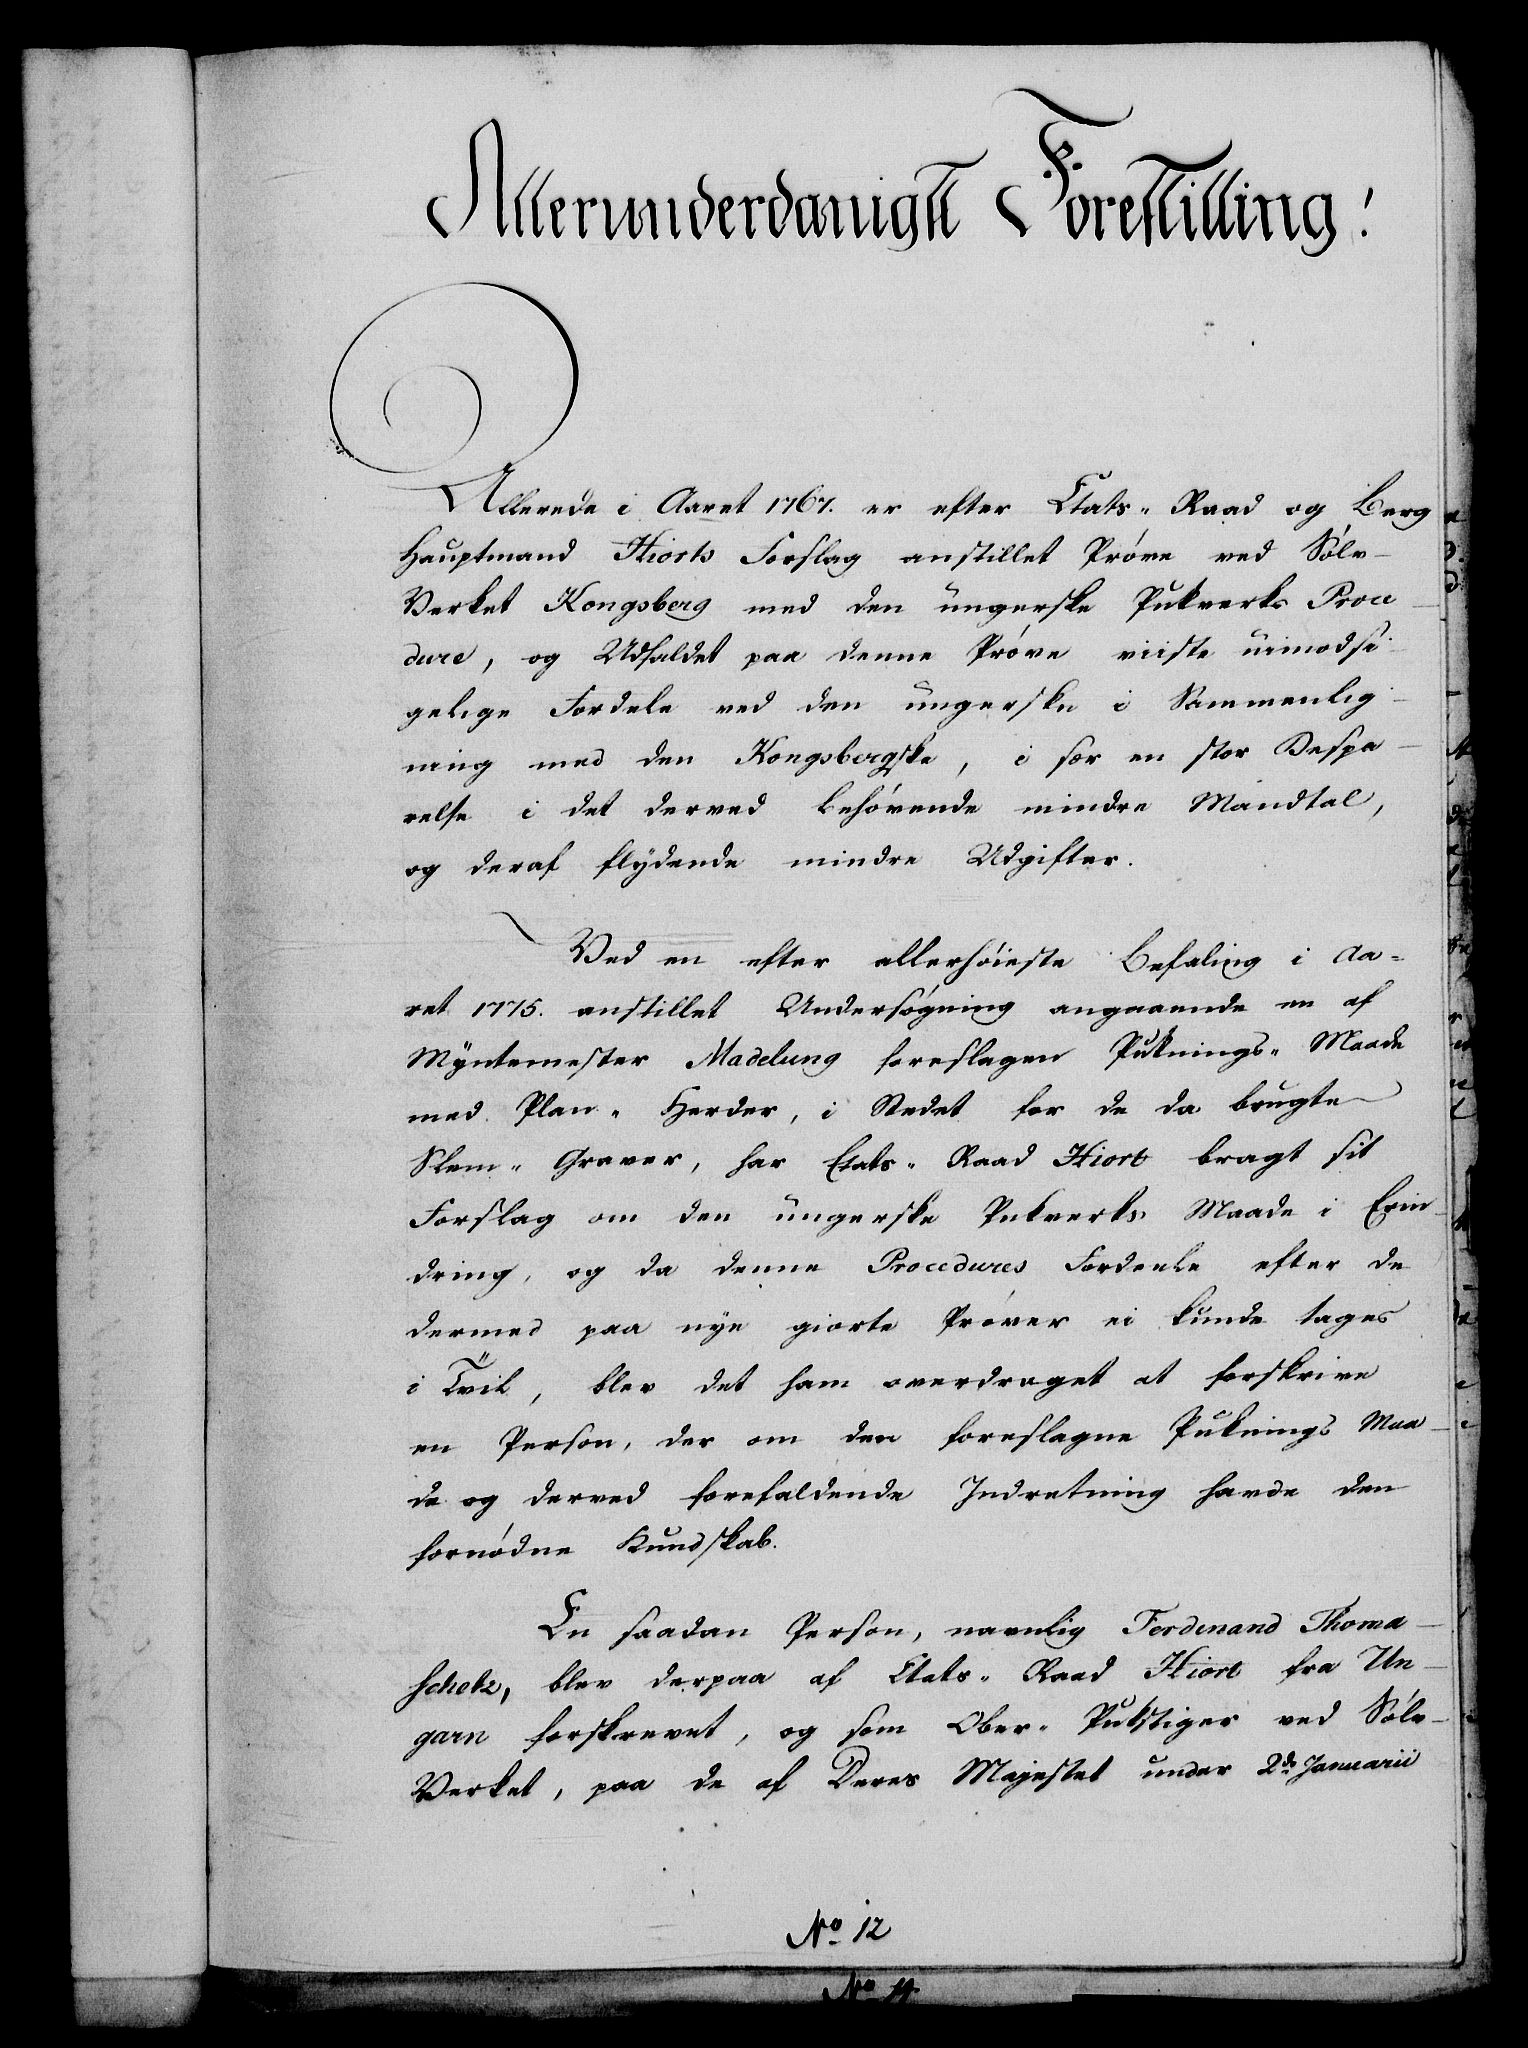 Allerunderdanigst Forestilling!
Allerede i Aaret 1767. er efter Etats-Raad og Berg
Hauptmand Hiorts Forslag anstillet Prøve ved Sølv-
Verket Kongsberg med den ungerske Pukverks Proce
dure, og Udfaldet paa denne Prøve viiste uimodsi-
gelige Fordele ved den ungerske i Sammenlig-
ning med den Kongsbergske, i sær en stor Bespa-
relse i det derved behøvende mindre Mandtal,
og deraf flydende mindre Udgifter.
Ved en efter allerhøieste Befaling i Aa-
ret 1775. anstillet Undersøgning angaaende en af
Myntemester Madelung foreslagen Puknings-Maade
med Plan-Herder, i Stedet for de da brugte
Slem-Graver, har Etats-Raad Hiort bragt sit
Forslag om den ungerske Pukverks Maade i Erin-
dring, og da denne Procedures Fordeele efter de
dermed paa nye giorte Prøver ei kunde tages
i Tvil, blev det ham overdraget at forskrive
en Person, der om den foreslagne Puknings Maa-
de og derved forefaldende Indretning havde den
fornødne Kundskab.
En saadan Person, navnlig Ferdinand Thoma-
schek, blev derpaa af Etats-Raad Hiort fra Un-
garn forskrevet, og som Ober-Pukstiger ved Sølv-
Verket, paa de af Deres Majestet under 2de Januarii
No 12
No 14